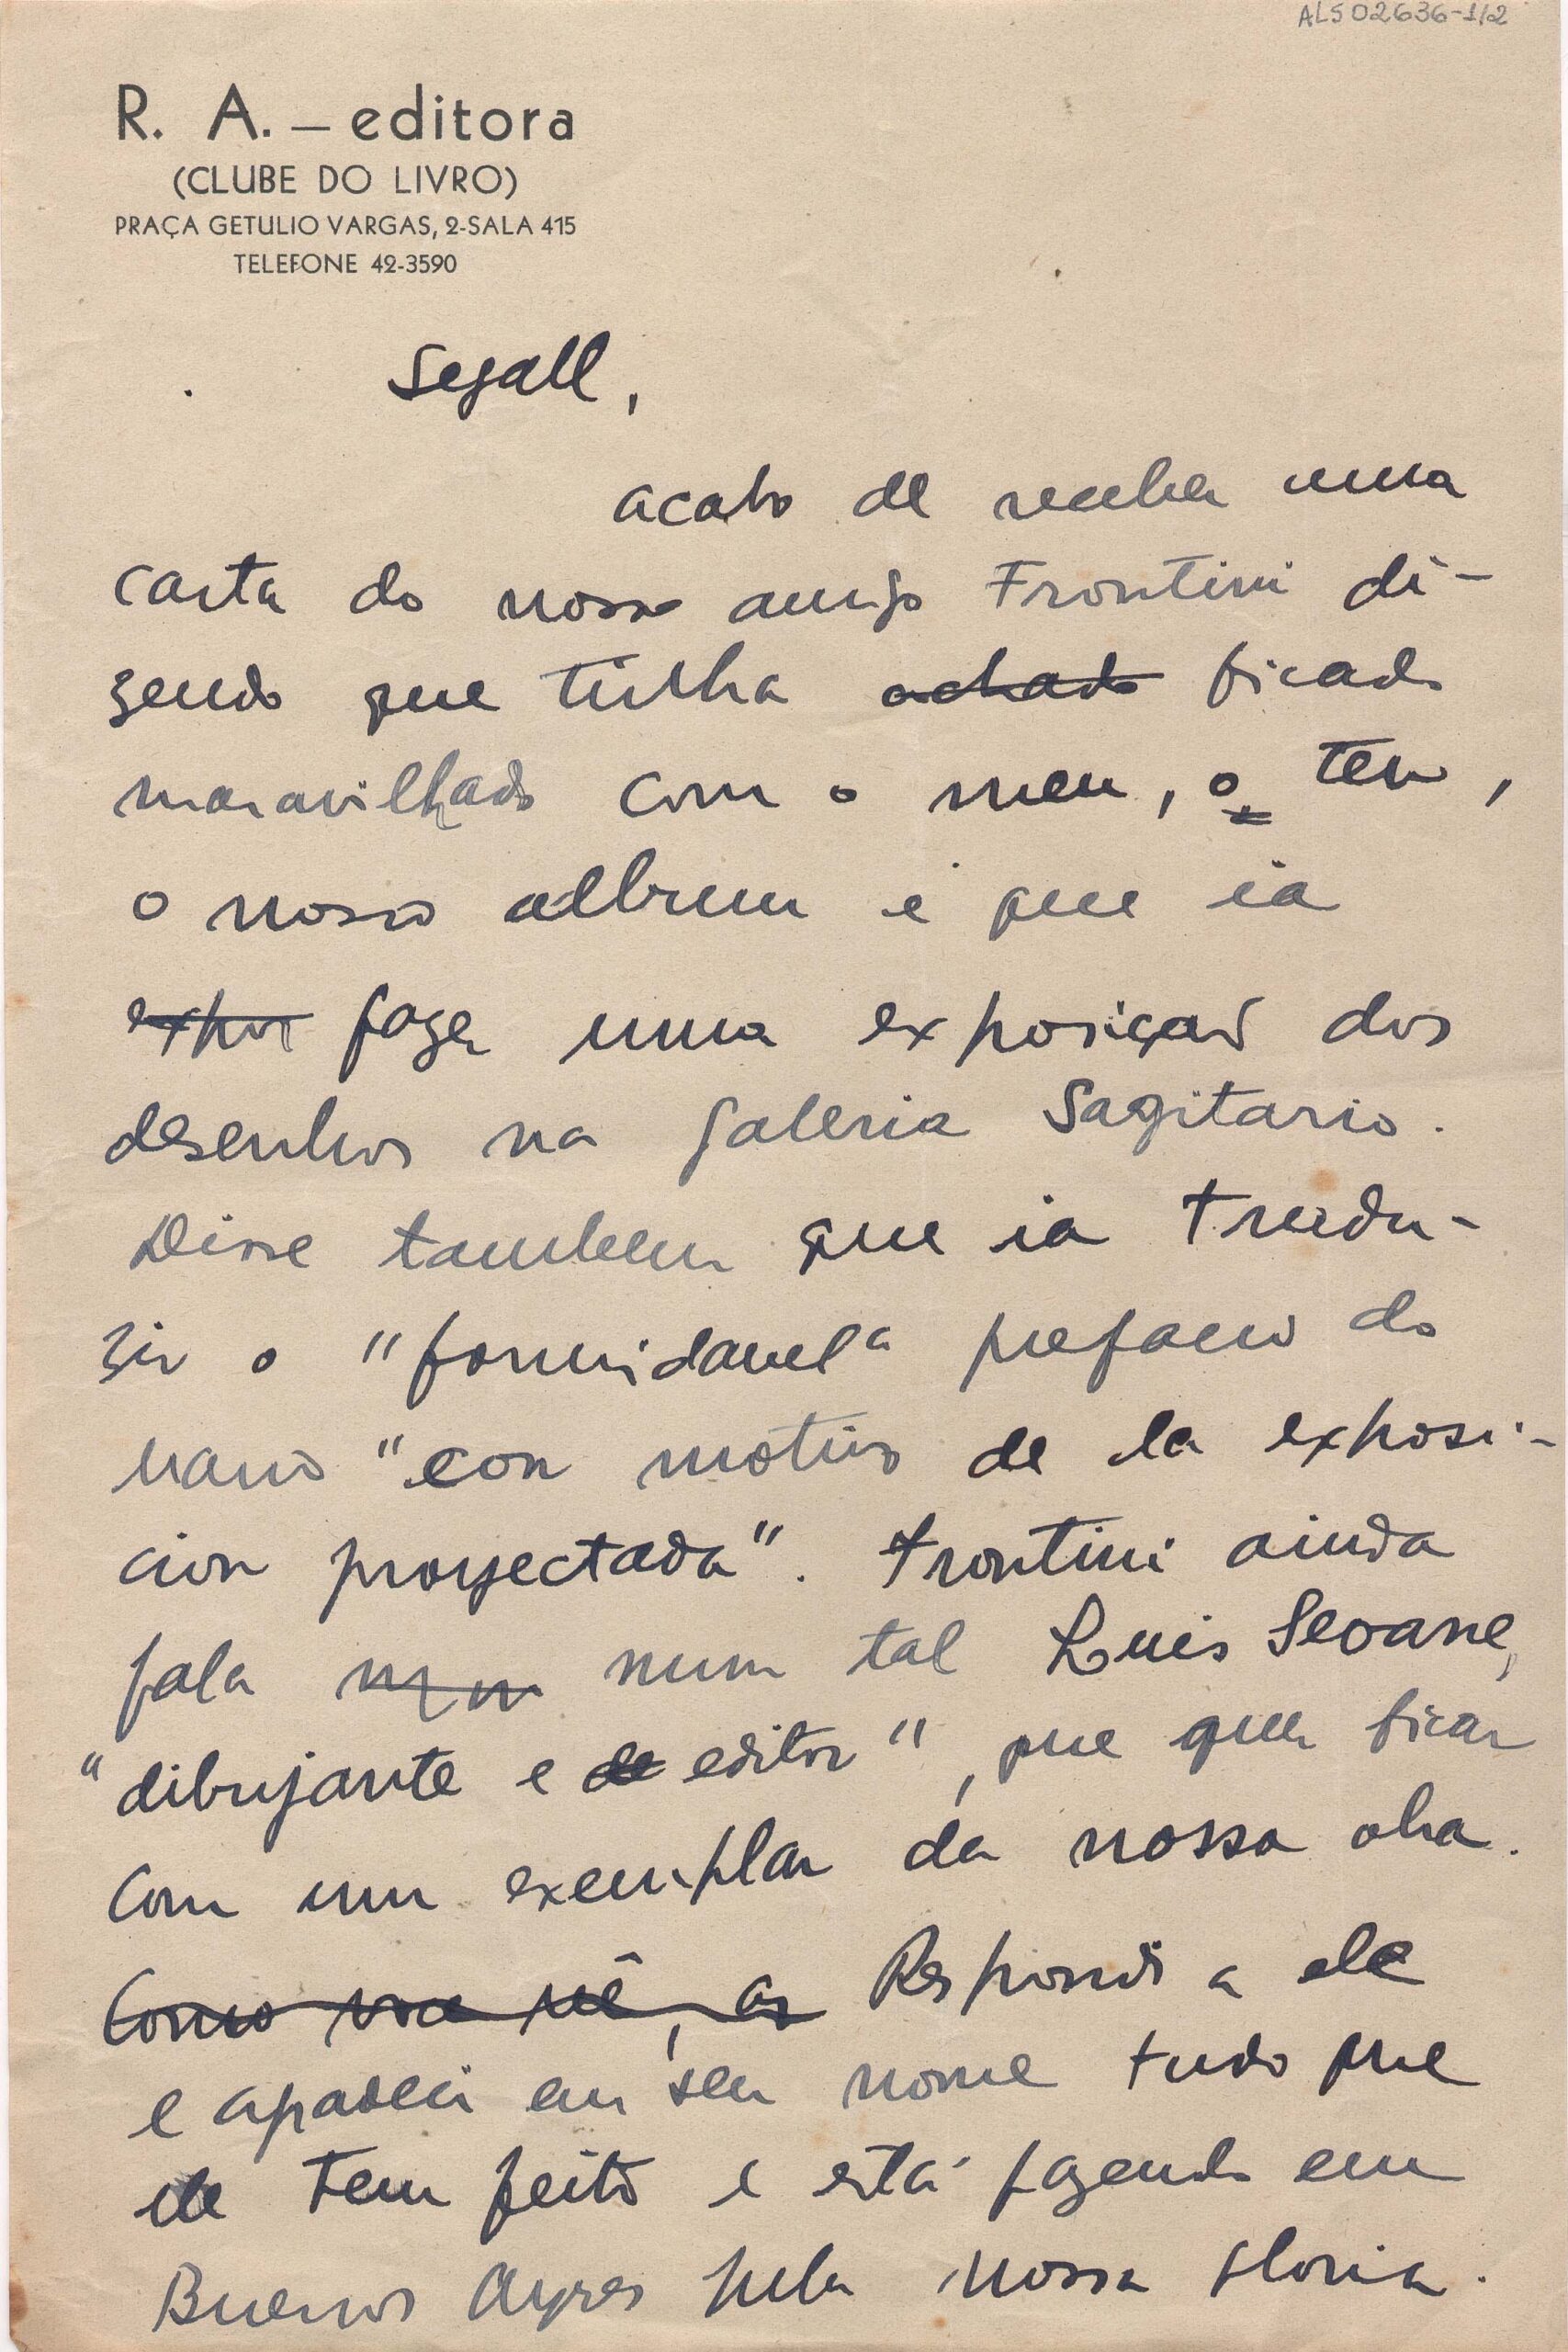 ALS 02636-1/2
R. A. – editora
(CLUBE DO LIVRO)
PRAÇA GETULIO VARGAS, 2-SALA 415
TELEFONE 42-3590
Segall,
acabo de receber uma
carta do nosso amigo Frontini di-
zendo que tinha achado ficado
maravilhado com o meu, o teu,
o nosso album e que ia
expor fazer uma exposiçaõ dos
desenhos na galeria Sagitario.
Disse tambem que ia tradu-
zir o "formidavel" prefacio do
Mario "con motivo de la exposi-
cion proyectada". Frontini ainda
fala num tal Luis Seoane,
"dibujante e de editor", que quer ficar
com um exemplar da nossa obra.
Como voce vê, as Respondi a ele
e agradeci em seu nome tudo que
ele tem feito e está fazendo em
Buenos Ayres pela nossa gloria.